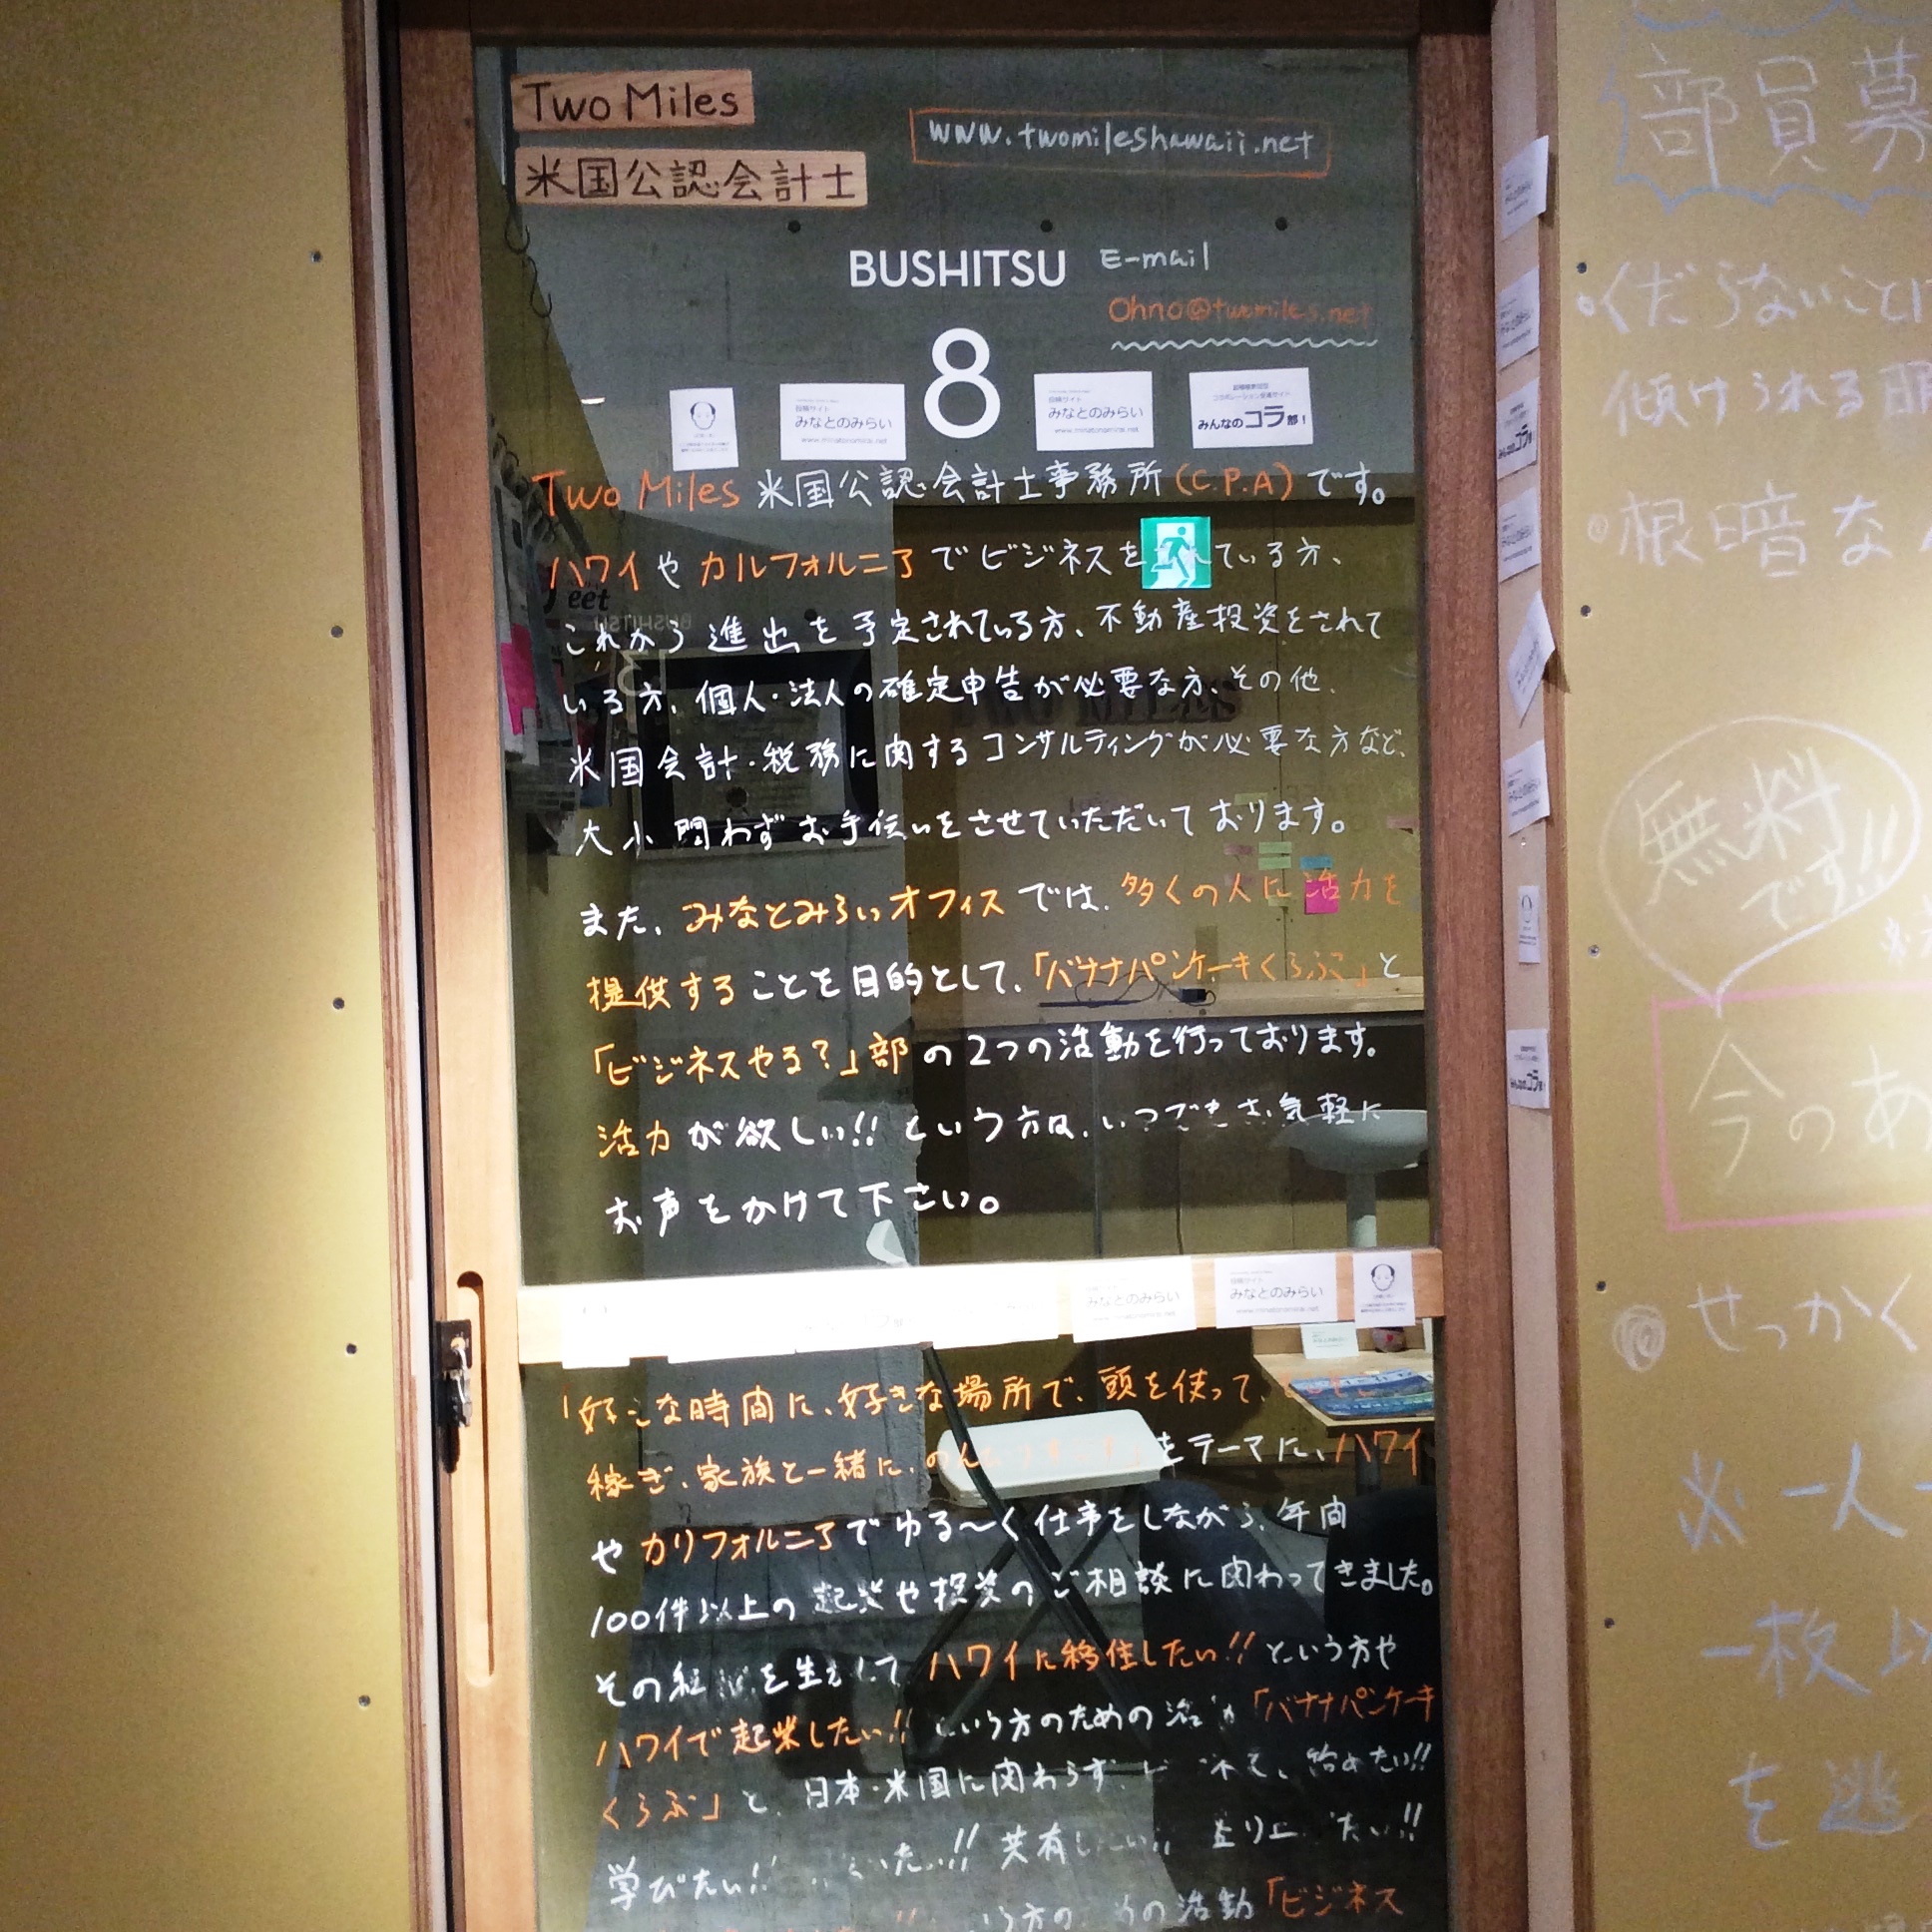 Two Miles
米国公認会計士
www.twomileshawaii.net
BUSHITSU
E-mail
Ohno@twomiles.net
8
投稿サイト
みなとのみらい
www.minatonomirai.net
投稿サイト
みなとのみらい
www.minatonomirai.net
みんなのコラ部!
Two Miles 米国公認会計士事務所(C.P.A)です。
ハワイやカルフォルニアでビジネスを ている方、
これから進出を予定されている方、不動産投資をされて
いる方、個人・法人の確定申告が必要な方、その他、
米国会計・税務に関するコンサルティングが必要な方など、
大小問わずお手伝いをさせていただいております。
また、みなとみらいオフィスでは、多くの人に活力を
提供することを目的として、「バナナパンケーキくらぶ」と
「ビジネスやる?」部の2つの活動を行っております。
活力が欲しい!!という方は、いつでも 気軽に
お声をかけて下さい。
みなとのみらい
投稿サイト
みなとのみらい
www.minatonomirai.net
「好きな時間に、好きな場所で、頭を使って、
稼ぎ、家族と一緒に、 」をテーマに、ハワイ
やカリフォルニアでゆる〜く仕事をしながら、年間
100件以上の起業や投資のご相談に関わってきました。
その経験を生かして、ハワイに移住したい!!という方や
ハワイで起業したい!!という方のための活動「バナナパンケーキ
くらぶ」と、日本・米国に関わらず、 始めたい!!
学びたい!! 共有したい!!
という方の の活動「ビジネス
部員募
くだらないことに
傾けられる
根暗な
無料
です!!
今のあ
せっかく
一人
一枚
を逃